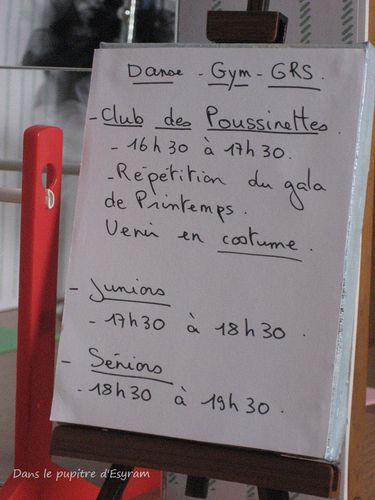 Danse - Gym - GRS.
- Club des Poussinettes.
- 16h30 à 17h30.
- Répétition du gala
de Printemps.
Venir en costume.
- Juniors
- 17h30 à 18h30.
- Séniors
- 18h30 à 19h30.
Dans le pupitre d'Esyram